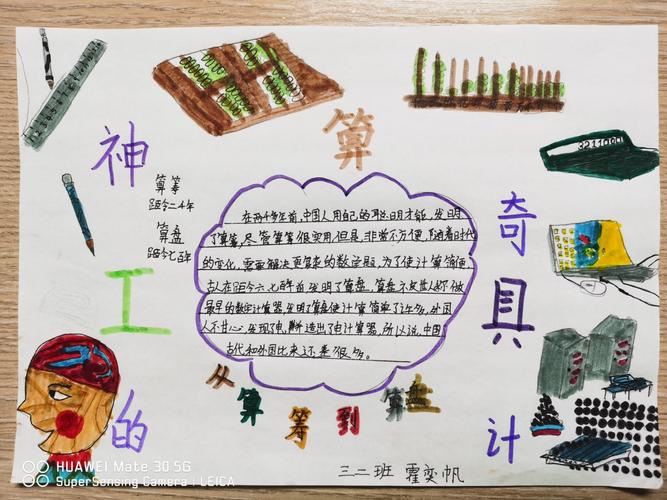 神
奇
的
计
算
工
具
算筹
距今二千年
算盘
距今七百年
在两千多年前,中国人用自己的聪明才能,发明
了算筹,尽管算筹很实用,但是,非常不方便,随着时代
的变化,需要解决更复杂的数学题,为了使计算简便,
古人在距今六、七百年前发明了算盘,算盘不
最早的数字计算器,发明了算盘使计算简单了许多,外国
人不甘心,发现了电,
造出了电计算器,所以说,中国
古代和外国比来还差很多。
从算筹到算盘
三二班 霍奕帆
HUAWEI Mate 30 5G
SuperSensing Camera | LEICA